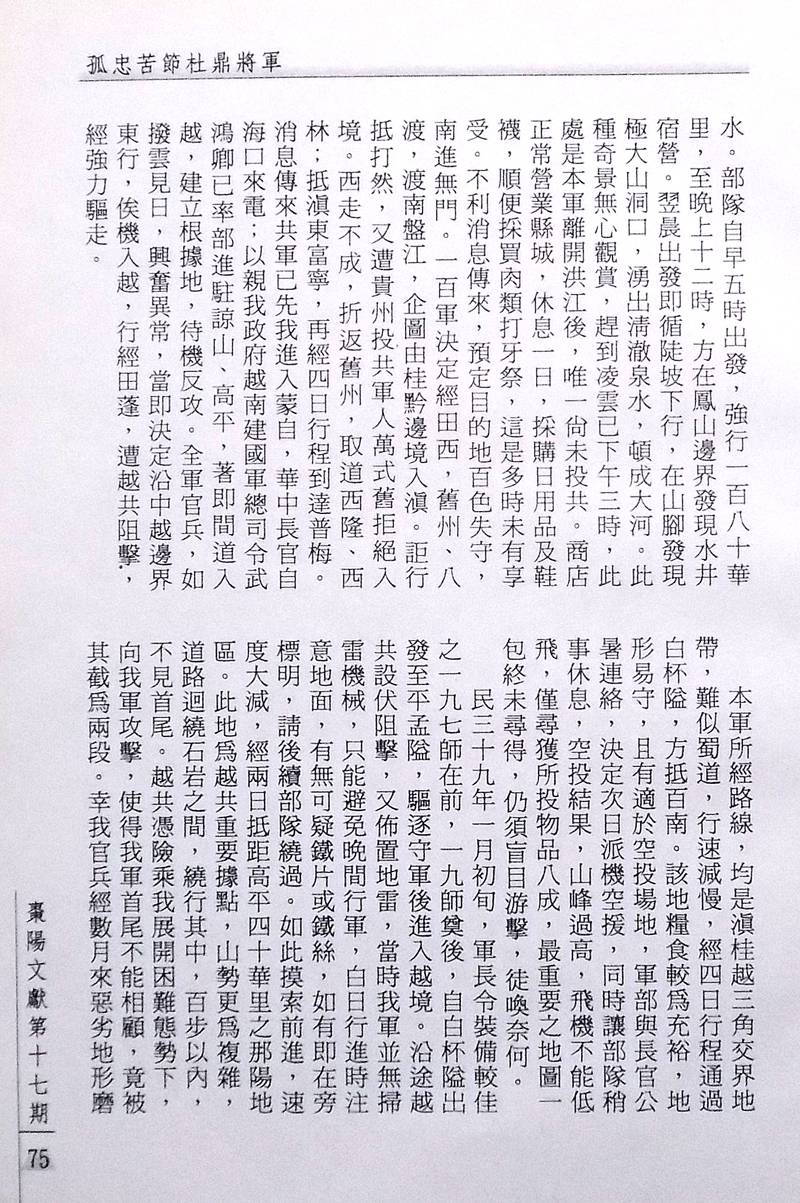 孤忠苦節杜鼎將軍
水。部隊自早五時出發，強行一百八十華
里，至晚上十二時，方在鳳山邊界發現水井
宿營。翌晨出發即循陡坡下行，在山腳發現
極大山洞口，湧出清澈泉水，頓成大河。此
種奇景無心觀賞，趕到凌雲已下午三時，此
處是本軍離開洪江後，唯一尚未投共。商店
正常營業縣城，休息一日，採購日用品及鞋
襪，順便採買肉類打牙祭，這是多時未有享
受。不利消息傳來，預定目的地百色失守，
南進無門。一百軍決定經田西，舊州、八
渡，渡南盤江，企圖由桂黔邊境入滇。詎行
抵打然，又遭貴州投共軍人萬式舊拒絕入
境。西走不成，折返舊州，取道西隆、西
林；抵滇東富寧，再經四日行程到達普梅。
消息傳來共軍已先我進入蒙自，華中長官自
海口來電；以親我政府越南建國軍總司令武
鴻卿已率部進駐諒山、高平，著即間道入
越，建立根據地，待機反攻。全軍官兵，如
撥雲見日，興奮異常，當即決定沿中越邊界
東行，俟機入越，行經田蓬，遭越共阻擊，
經強力驅走。
本軍所經路線，均是滇桂越三角交界地
帶，難似蜀道，行速減慢，經四日行程通過
白杯隘，方抵百南。該地糧食較為充裕，地
形易守，且有適於空投場地，軍部與長官公
暑連絡，決定次日派機空援，同時讓部隊稍
事休息，空投結果，山峰過高，飛機不能低
飛，僅尋獲所投物品八成，最重要之地圖一
包終未尋得，仍須盲目游擊，徒喚奈何。
民三十九年一月初旬，軍長令裝備較佳
之一九七師在前，一九師奠後，自白杯隘出
發至平孟隘，驅逐守軍後進入越境。沿途越
共設伏阻擊，又佈置地雷，當時我軍並無掃
雷機械，只能避免晚間行軍，白日行進時注
意地面，有無可疑鐵片或鐵絲，如有即在旁
標明，請後續部隊繞過。如此摸索前進，速
度大減，經兩日抵距高平四十華里之那陽地
區。此地為越共重要據點，山勢更為複雜，
道路迴繞石岩之間，繞行其中，百步以內，
不見首尾。越共憑險乘我展開困難態勢下，
向我軍攻擊，使得我軍首尾不能相顧，竟被
其截為兩段。幸我官兵經數月來惡劣地形磨
棗陽文獻第十七期
75